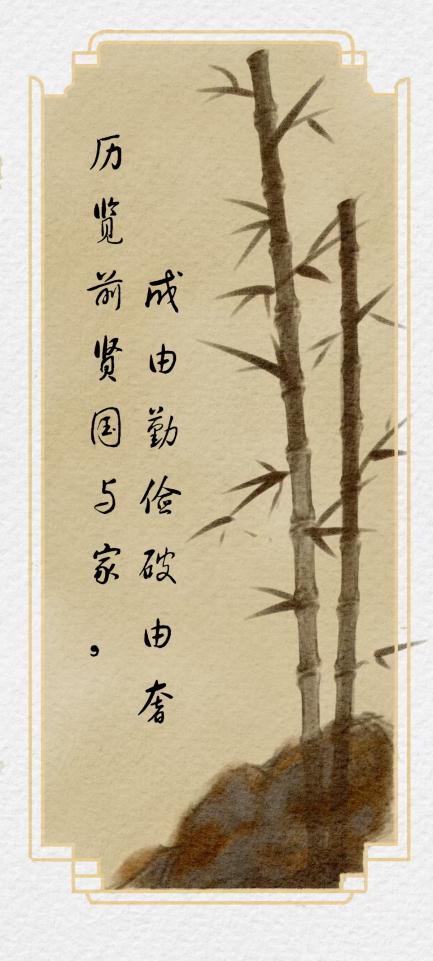 历览前贤国与家，
成由勤俭破由奢